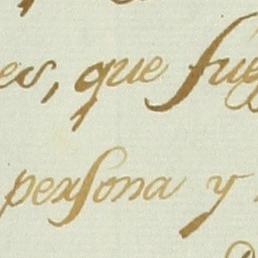 es, que fue
persona y